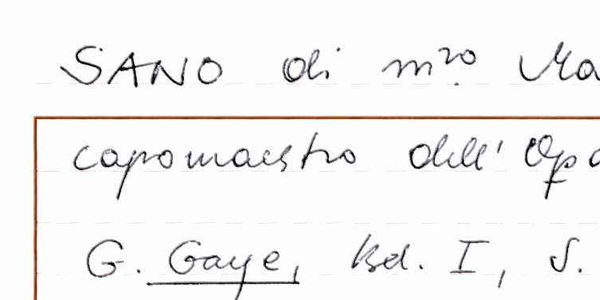 SANO di m.ro Ma
capomaestro dell'Op
G. Gaye, Bd. I, S.